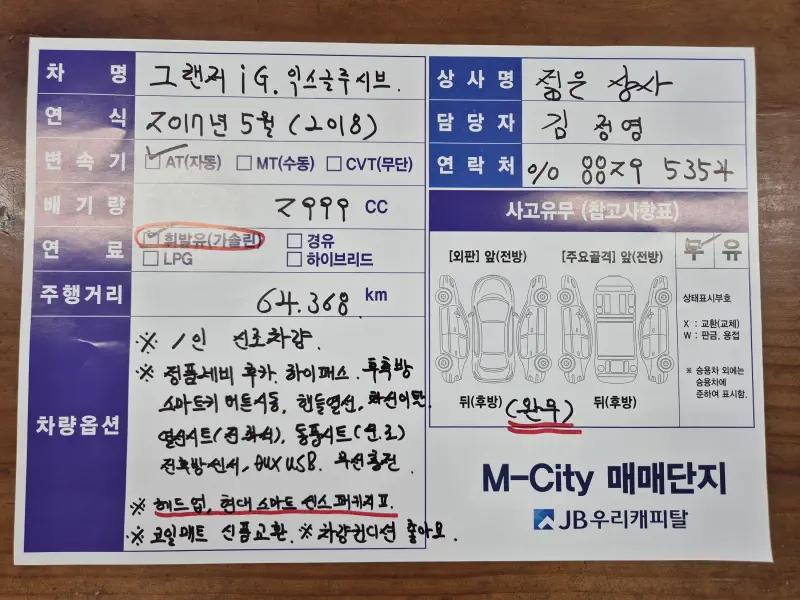 차 명 그랜저 iG. 익스클루시브.
연 식 2017년 5월 (2018)
변속기 ☑ AT(자동) □ MT(수동) □ CVT(무단)
배기량 2999 CC
연 료 ☑ 휘발유(가솔린) □ 경유
□ LPG □ 하이브리드
주행거리 64.368 km
차량옵션
※ 1인 신조차량.
※ 정품네비 후카. 하이패스. 후측방
스마트키 버튼시동, 핸들열선, 차선이탈.
열선시트(전좌석), 통풍시트(운.조)
전후방센서, AUX USB. 무선충전
※ 헤드업, 현대 스마트 센스 패키지 II.
※ 코일매트 신품교환. ※ 차량컨디션 좋아요.
상사명 젊은 상사
담당자 김 정영
연락처 010 8879 5354
사고유무 (참고사항표)
[외판] 앞(전방) [주요골격] 앞(전방) 무 유
상태표시부호
X : 교환(교체)
W : 판금, 용접
※ 승용차 외에는
승용차에
준하여 표시함.
뒤(후방) (완무) 뒤(후방)
M-City 매매단지
JB우리캐피탈